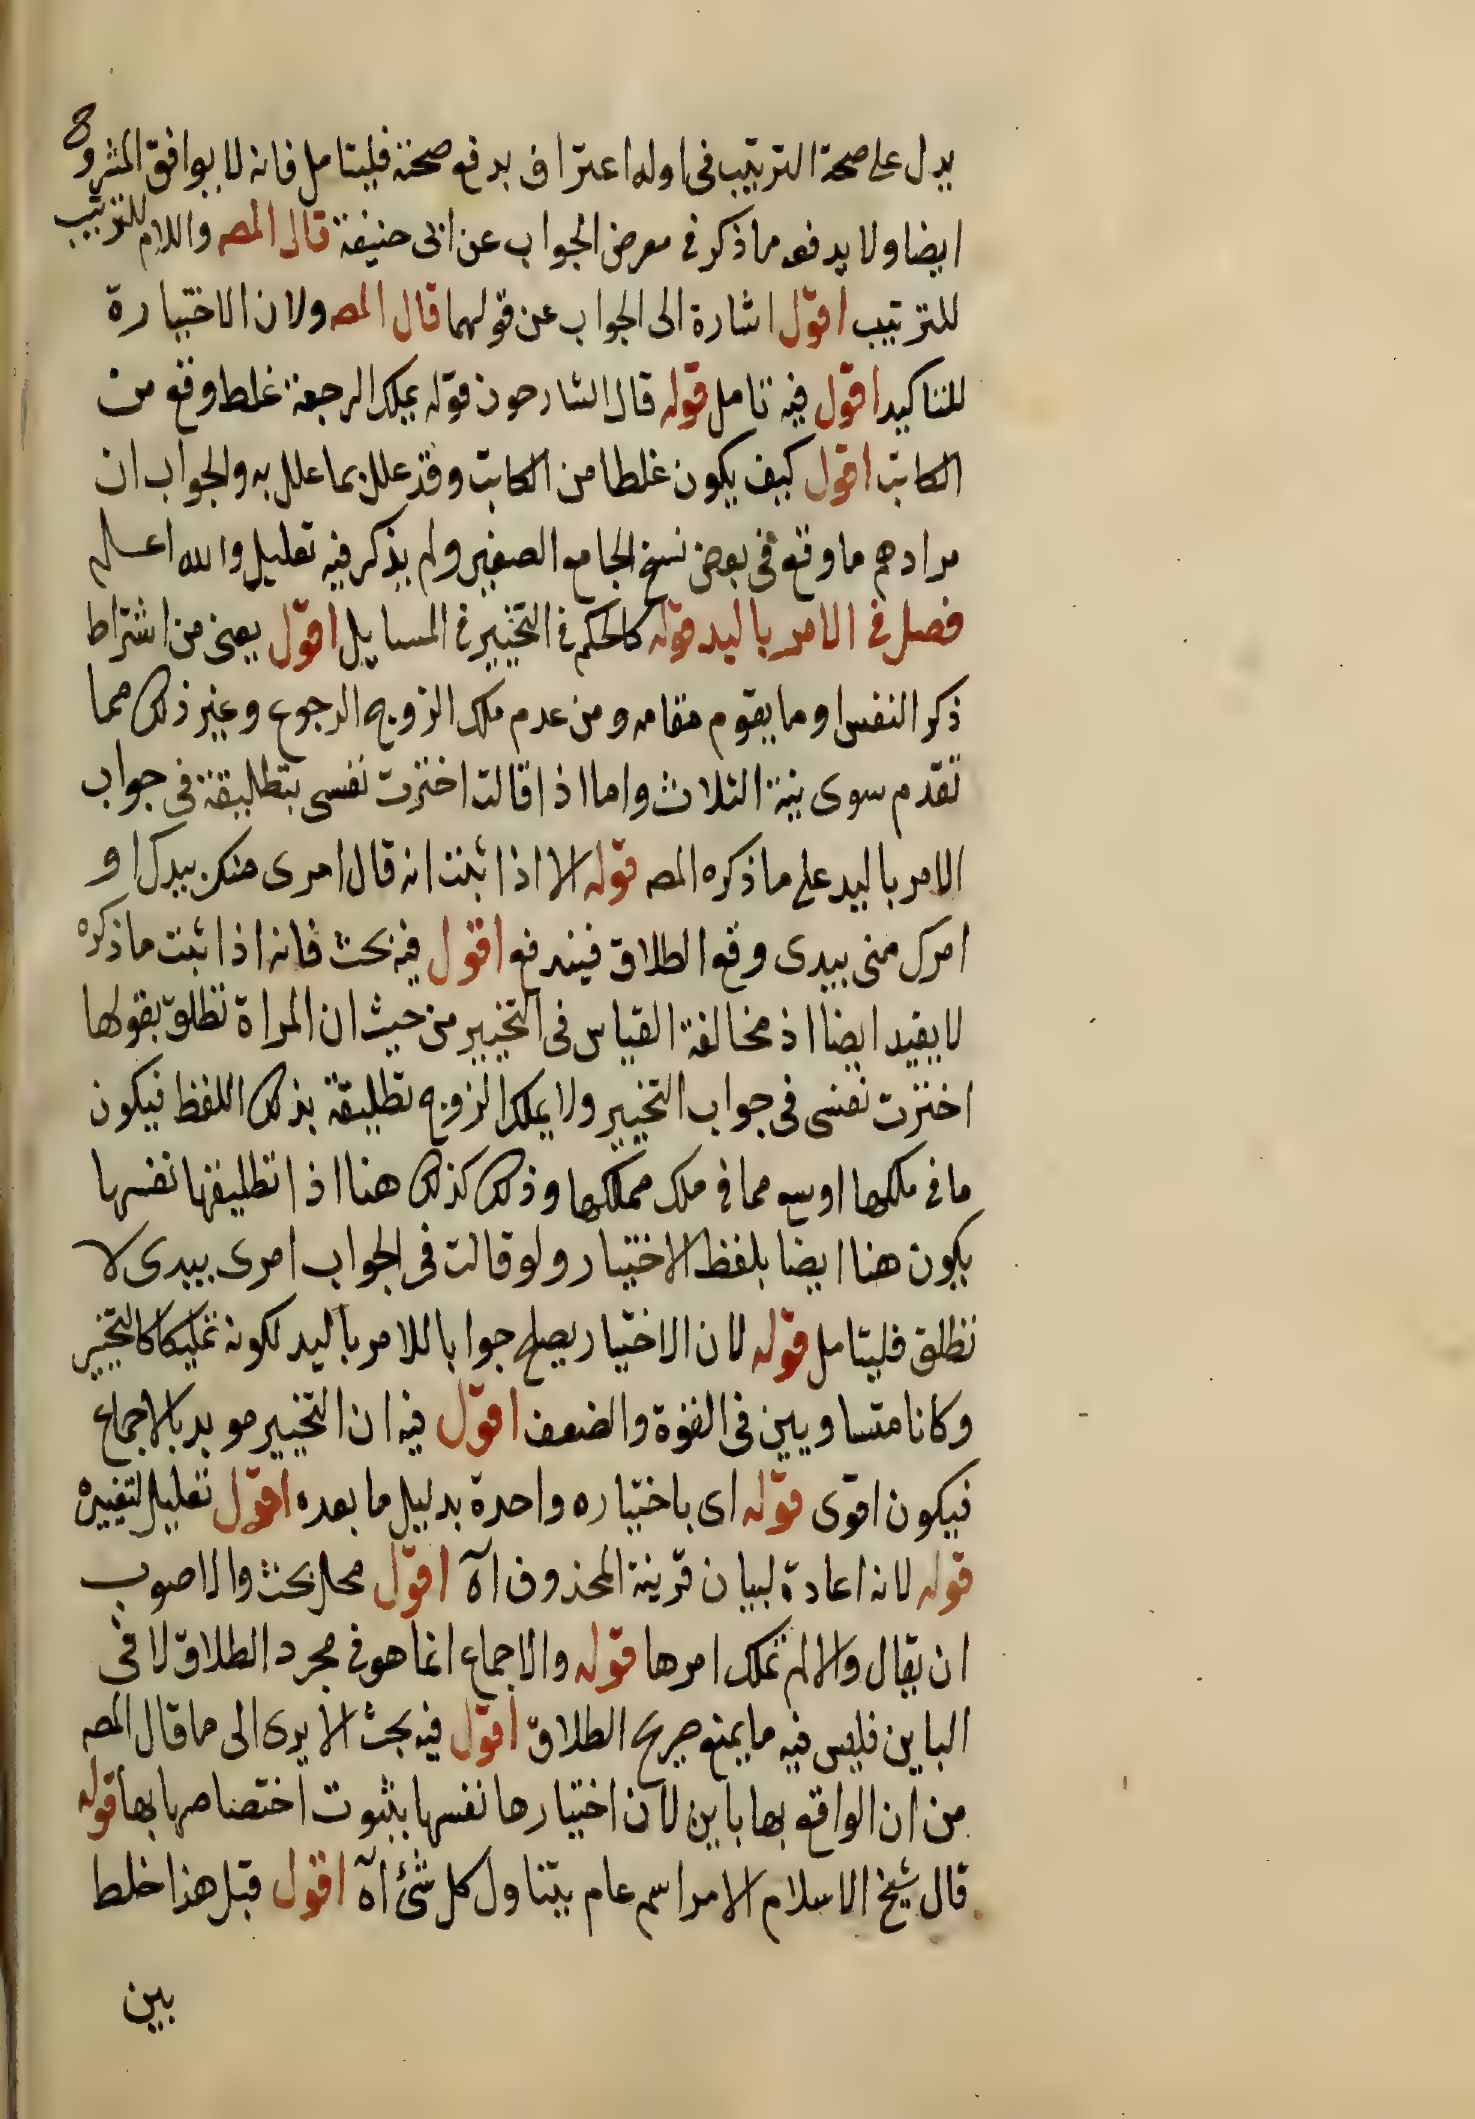 يدل على صحة الترتيب فى اوله اعتراف بدفع صحته فليتامل فانه لا يوافق المشروح
ايضا ولا يدفعه ما ذكر فى معرض الجواب عن ابى حنيفة قال المصـ واللام للترتيب
للترتيب اقول اشارة الى الجواب عن قولهما قال المصـ ولان الاختيارة
للتاكيد اقول فيه تامل قوله قال الشارحون قوله يملك الرجعة غلط وقع من
الكاتب اقول كيف يكون غلطا من الكاتب وقد علل بما علل به والجواب ان
مرادهم ما وقع فى بعض نسخ الجامع الصغير ولم يذكر فيه تعليل والله اعلم
فصل فى الامر باليد قوله كالحكم فى التخيير فى المسايل اقول يعنى من اشتراط
ذكر النفس او ما يقوم مقامه ومن عدم ملك الزوج الرجوع وغير ذلك مما
تقدم سوى نية الثلاث واما اذا قالت اخترت نفسى بتطليقة فى جواب
الامر باليد على ما ذكره المصـ قوله الا اذا ثبت انه قال امرى منك بيدك او
امرك منى بيدى وقع الطلاق فيندفع اقول فيه بحث فانه اذا ثبت ما ذكره
لا يفيد ايضا اذ مخالفة القياس فى التخيير من حيث ان المراة تطلق بقولها
اخترت نفسى فى جواب التخيير ولا يملك الزوج تطليقة بذلك اللفظ فيكون
ما فى ملكها اوسع مما فى ملك مملكها وذلك كذلك هنا اذا تطليقها نفسها
يكون هنا ايضا بلفظ الاختيار ولو قالت فى الجواب امرى بيدى لا
تطلق فليتامل قوله لان الاختيار يصلح جوابا للامر باليد لكونه تمليكا كالتخيير
وكانا متساويين فى القوة والضعف اقول فيه ان التخيير مويد بالاجماع
فيكون اقوى قوله اى باختياره واحدة بدليل ما بعده اقول تعليل لتغييره
قوله لانه اعادة لبيان قرينة المحذوف آه اقول محل بحث والاصوب
ان يقال والا لم تملك امرها قوله والاجماع انما هو فى مجرد الطلاق لا فى
الباين فليس فيه ما يمنع صريح الطلاق اقول فيه بحث الا يرى الى ما قال المصـ
من ان الواقع بها باين لان اختيارها نفسها بثبوت اختصاصها بها قوله
قال شيخ الاسلام الامر اسم عام يتناول كل شئ آه اقول قبل هذا خلط
بين